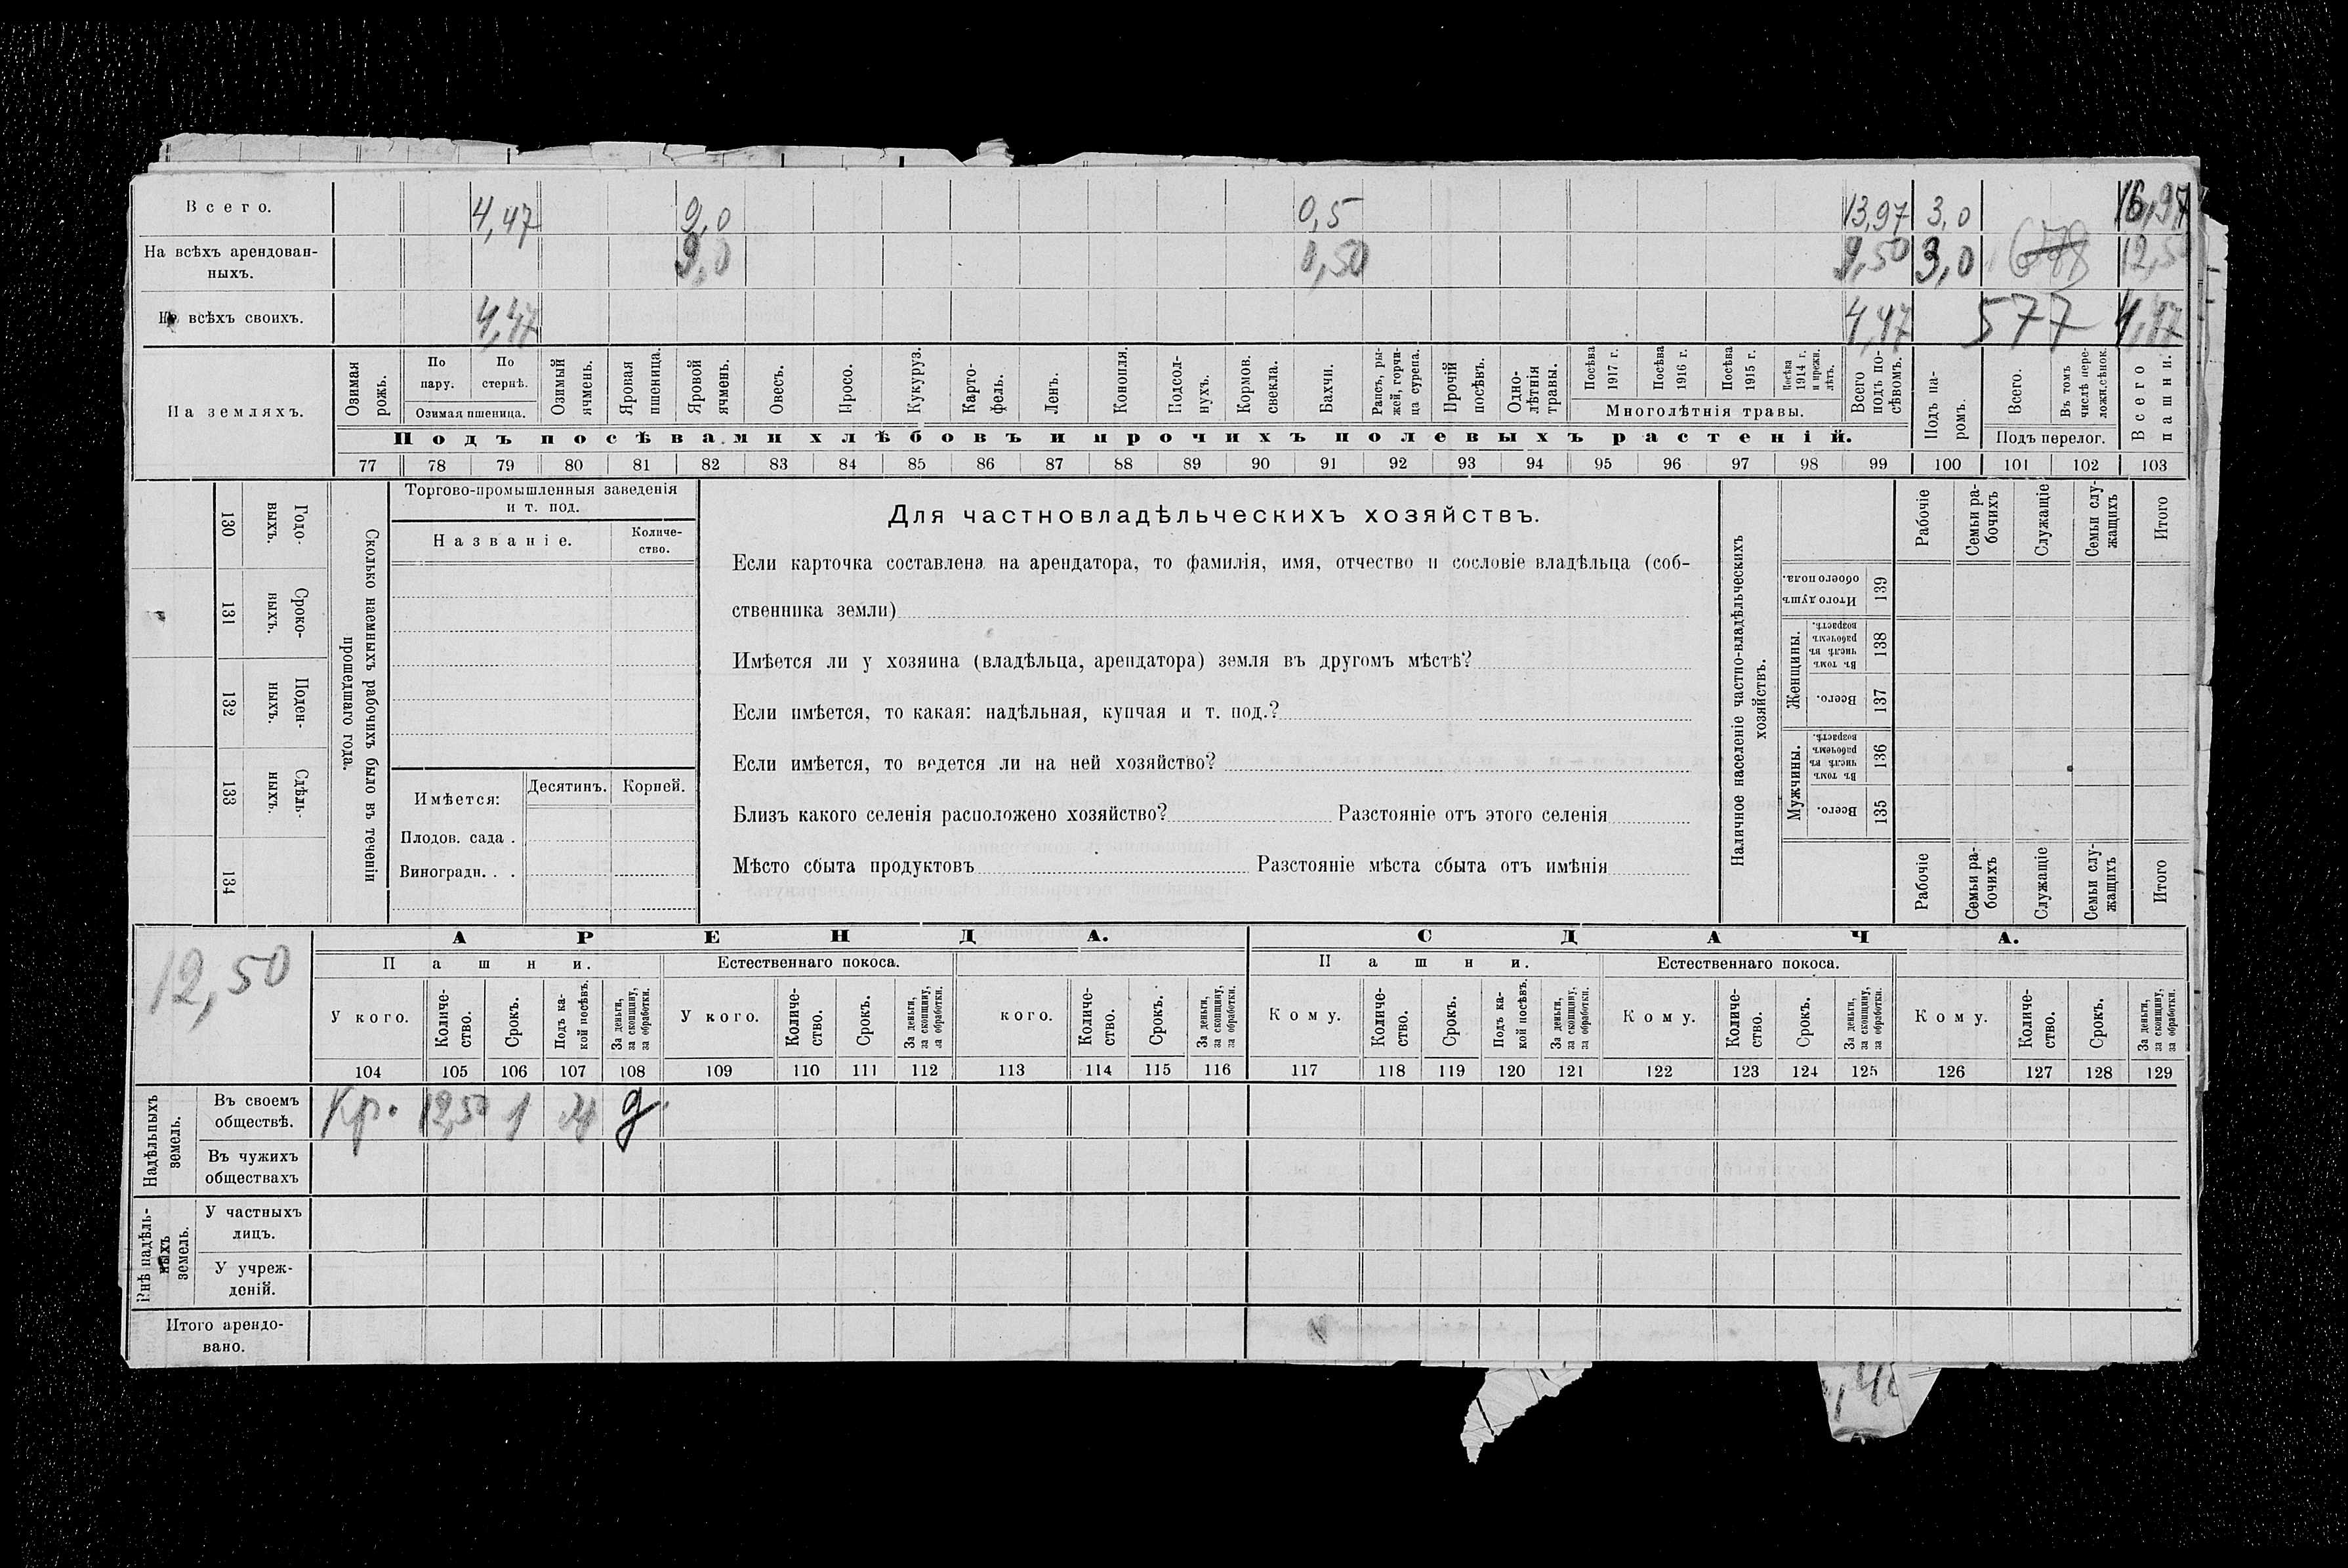 Всего. 4,47 9,0 0,5 13,97 3,0 16,97
На всѣхъ арендован-
ныхъ. 9,0 0,50 9,50 3,0 678 12,50
На всѣхъ своихъ. 4,47 4,47 577 4,47
На земляхъ.
Озимая рожь.
По пару.
По стернѣ.
Озимая пшеница.
Озимый ячмень.
Яровая пшеница.
Яровой ячмень.
Овесъ.
Просо.
Кукуруз.
Карто-
фель.
Ленъ.
Конопля.
Подсол-
нухъ.
Кормов. свекла.
Бахчи.
Рапсъ, ры-
жей, горчи-
ца сурепа.
Прочій посѣвъ.
Одно-
лѣтнія травы.
Посѣва 1917 г.
Посѣва 1916 г.
Посѣва 1915 г.
Посѣва 1914 г. и прежн. лѣтъ.
Многолѣтнія травы.
Всего подъ по-
сѣвомъ.
Подъ па-
ромъ.
Всего.
Въ томъ числѣ пере-
ложн.сѣнок.
Подъ перелог.
Всего пашни.
Подъ посѣвами хлѣбовъ и прочихъ полевыхъ растеній.
77 78 79 80 81 82 83 84 85 86 87 88 89 90 91 92 93 94 95 96 97 98 99 100 101 102 103
130 Годо-
выхъ.
131 Сроко-
выхъ.
132 Поден-
ныхъ.
133 Сдѣль-
ныхъ.
134
Сколько наемныхъ рабочихъ было въ теченіи
прошедшаго года.
Торгово-промышленныя заведенія
и т. под.
Названіе.
Количе-
ство.
Имѣется: Десятинъ. Корней.
Плодов. сада .
Виноградн. . .
Для частновладѣльческихъ хозяйствъ.
Если карточка составлена на арендатора, то фамилія, имя, отчество и сословіе владѣльца (соб-
ственника земли)
Имѣется ли у хозяина (владѣльца, арендатора) земля въ другомъ мѣстѣ?
Если имѣется, то какая: надѣльная, купчая и т. под.?
Если имѣется, то ведется ли на ней хозяйство?
Близъ какого селенія расположено хозяйство? Разстояніе отъ этого селенія
Мѣсто сбыта продуктовъ Разстояніе мѣста сбыта отъ имѣнія
Наличное населеніе частно-владѣльческихъ
хозяйствъ.
Рабочіе
Семьи ра-
бочихъ
Служащіе
Семьи слу-
жащихъ
Итого
Итого душъ обоего пола. 139
Женщины.
Въ томъ числѣ въ рабочемъ возрастѣ. 138
Всего. 137
Мужчины.
Въ томъ числѣ въ рабочемъ возрастѣ. 136
Всего. 135
Рабочіе
Семьи ра-
бочихъ
Служащіе
Семьи слу-
жащихъ
Итого
12,50
АРЕНДА. СДАЧА.
Пашни. Естественнаго покоса. Пашни. Естественнаго покоса.
У кого.
Количе-
ство.
Срокъ.
Подъ ка-
кой посѣвъ.
За деньги,
за скопщину,
за обработки.
У кого.
Количе-
ство.
Срокъ.
За деньги,
за скопщину,
за обработки.
кого.
Количе-
ство.
Срокъ.
За деньги,
за скопщину,
за обработки.
Кому.
Количе-
ство.
Срокъ.
Подъ ка-
кой посѣвъ.
За деньги,
за скопщину,
за обработки.
Кому.
Количе-
ство.
Срокъ.
За деньги,
за скопщину,
за обработки.
Кому.
Количе-
ство.
Срокъ.
За деньги,
за скопщину,
за обработки.
104 105 106 107 108 109 110 111 112 113 114 115 116 117 118 119 120 121 122 123 124 125 126 127 128 129
Надѣльныхъ
земель.
Въ своемъ
обществѣ. Кр. 12,50 1 д.
Въ чужихъ
обществахъ
Внѣ надѣль-
ныхъ
земель.
У частныхъ
лицъ.
У учреж-
деній.
Итого арендо-
вано.